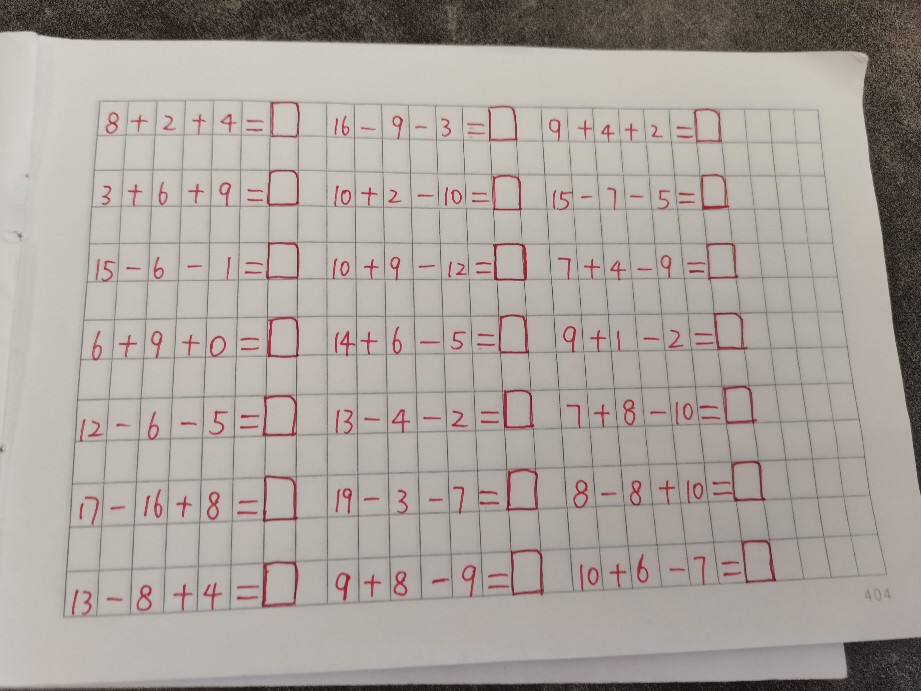 8+2+4=□ 16-9-3=□ 9+4+2=□
3+6+9=□ 10+2-10=□ 15-7-5=□
15-6-1=□ 10+9-12=□ 7+4-9=□
6+9+0=□ 14+6-5=□ 9+1-2=□
12-6-5=□ 13-4-2=□ 7+8-10=□
17-16+8=□ 19-3-7=□ 8-8+10=□
13-8+4=□ 9+8-9=□ 10+6-7=□
404